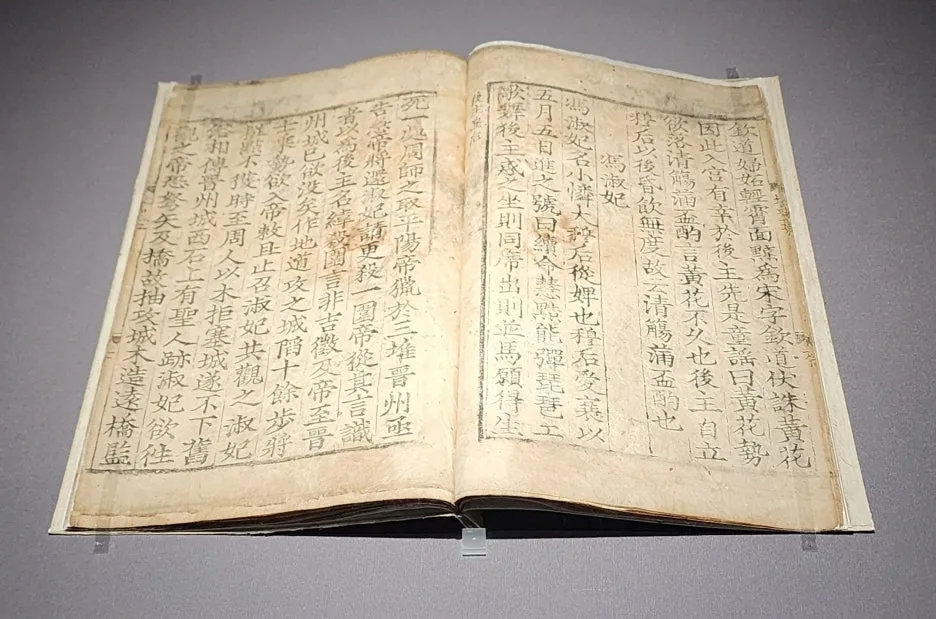 欽道婦妬輕霄面黥為宋字欽道伏誅黃花
因此入宮有幸於後主先是童謠曰黃花勢
欲落清觴滿盃酌言黃花不久也後主自立
穆后以後昏飲無度故云清觴滿盃酌也
馮淑妃
馮淑妃名小憐大穆后從婢也穆后愛衰以
五月五日進之號曰續命慧黠能彈琵琶工
歌舞後主惑之坐則同席出則並馬願得生
死一處周師之取平陽帝獵於三堆晉州亟
告急帝將還淑妃請更殺一圍帝從其言識
者以為後主名緯殺圍言非吉徵及帝至晉
州城已欲没矣作地道攻之城陷十餘步將
士乘勢欲入帝敕且止召淑妃共觀之淑妃
粧點不獲時至周人以木拒塞城遂不下舊
俗相傳晉州城西石上有聖人跡淑妃欲往
觀之帝恐弩矢及橋故抽攻城木造遠橋監